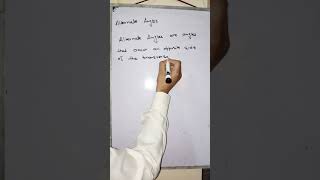 Alternate Angles
Alternate Angles are angles
that occur on opposite side
of the transvers